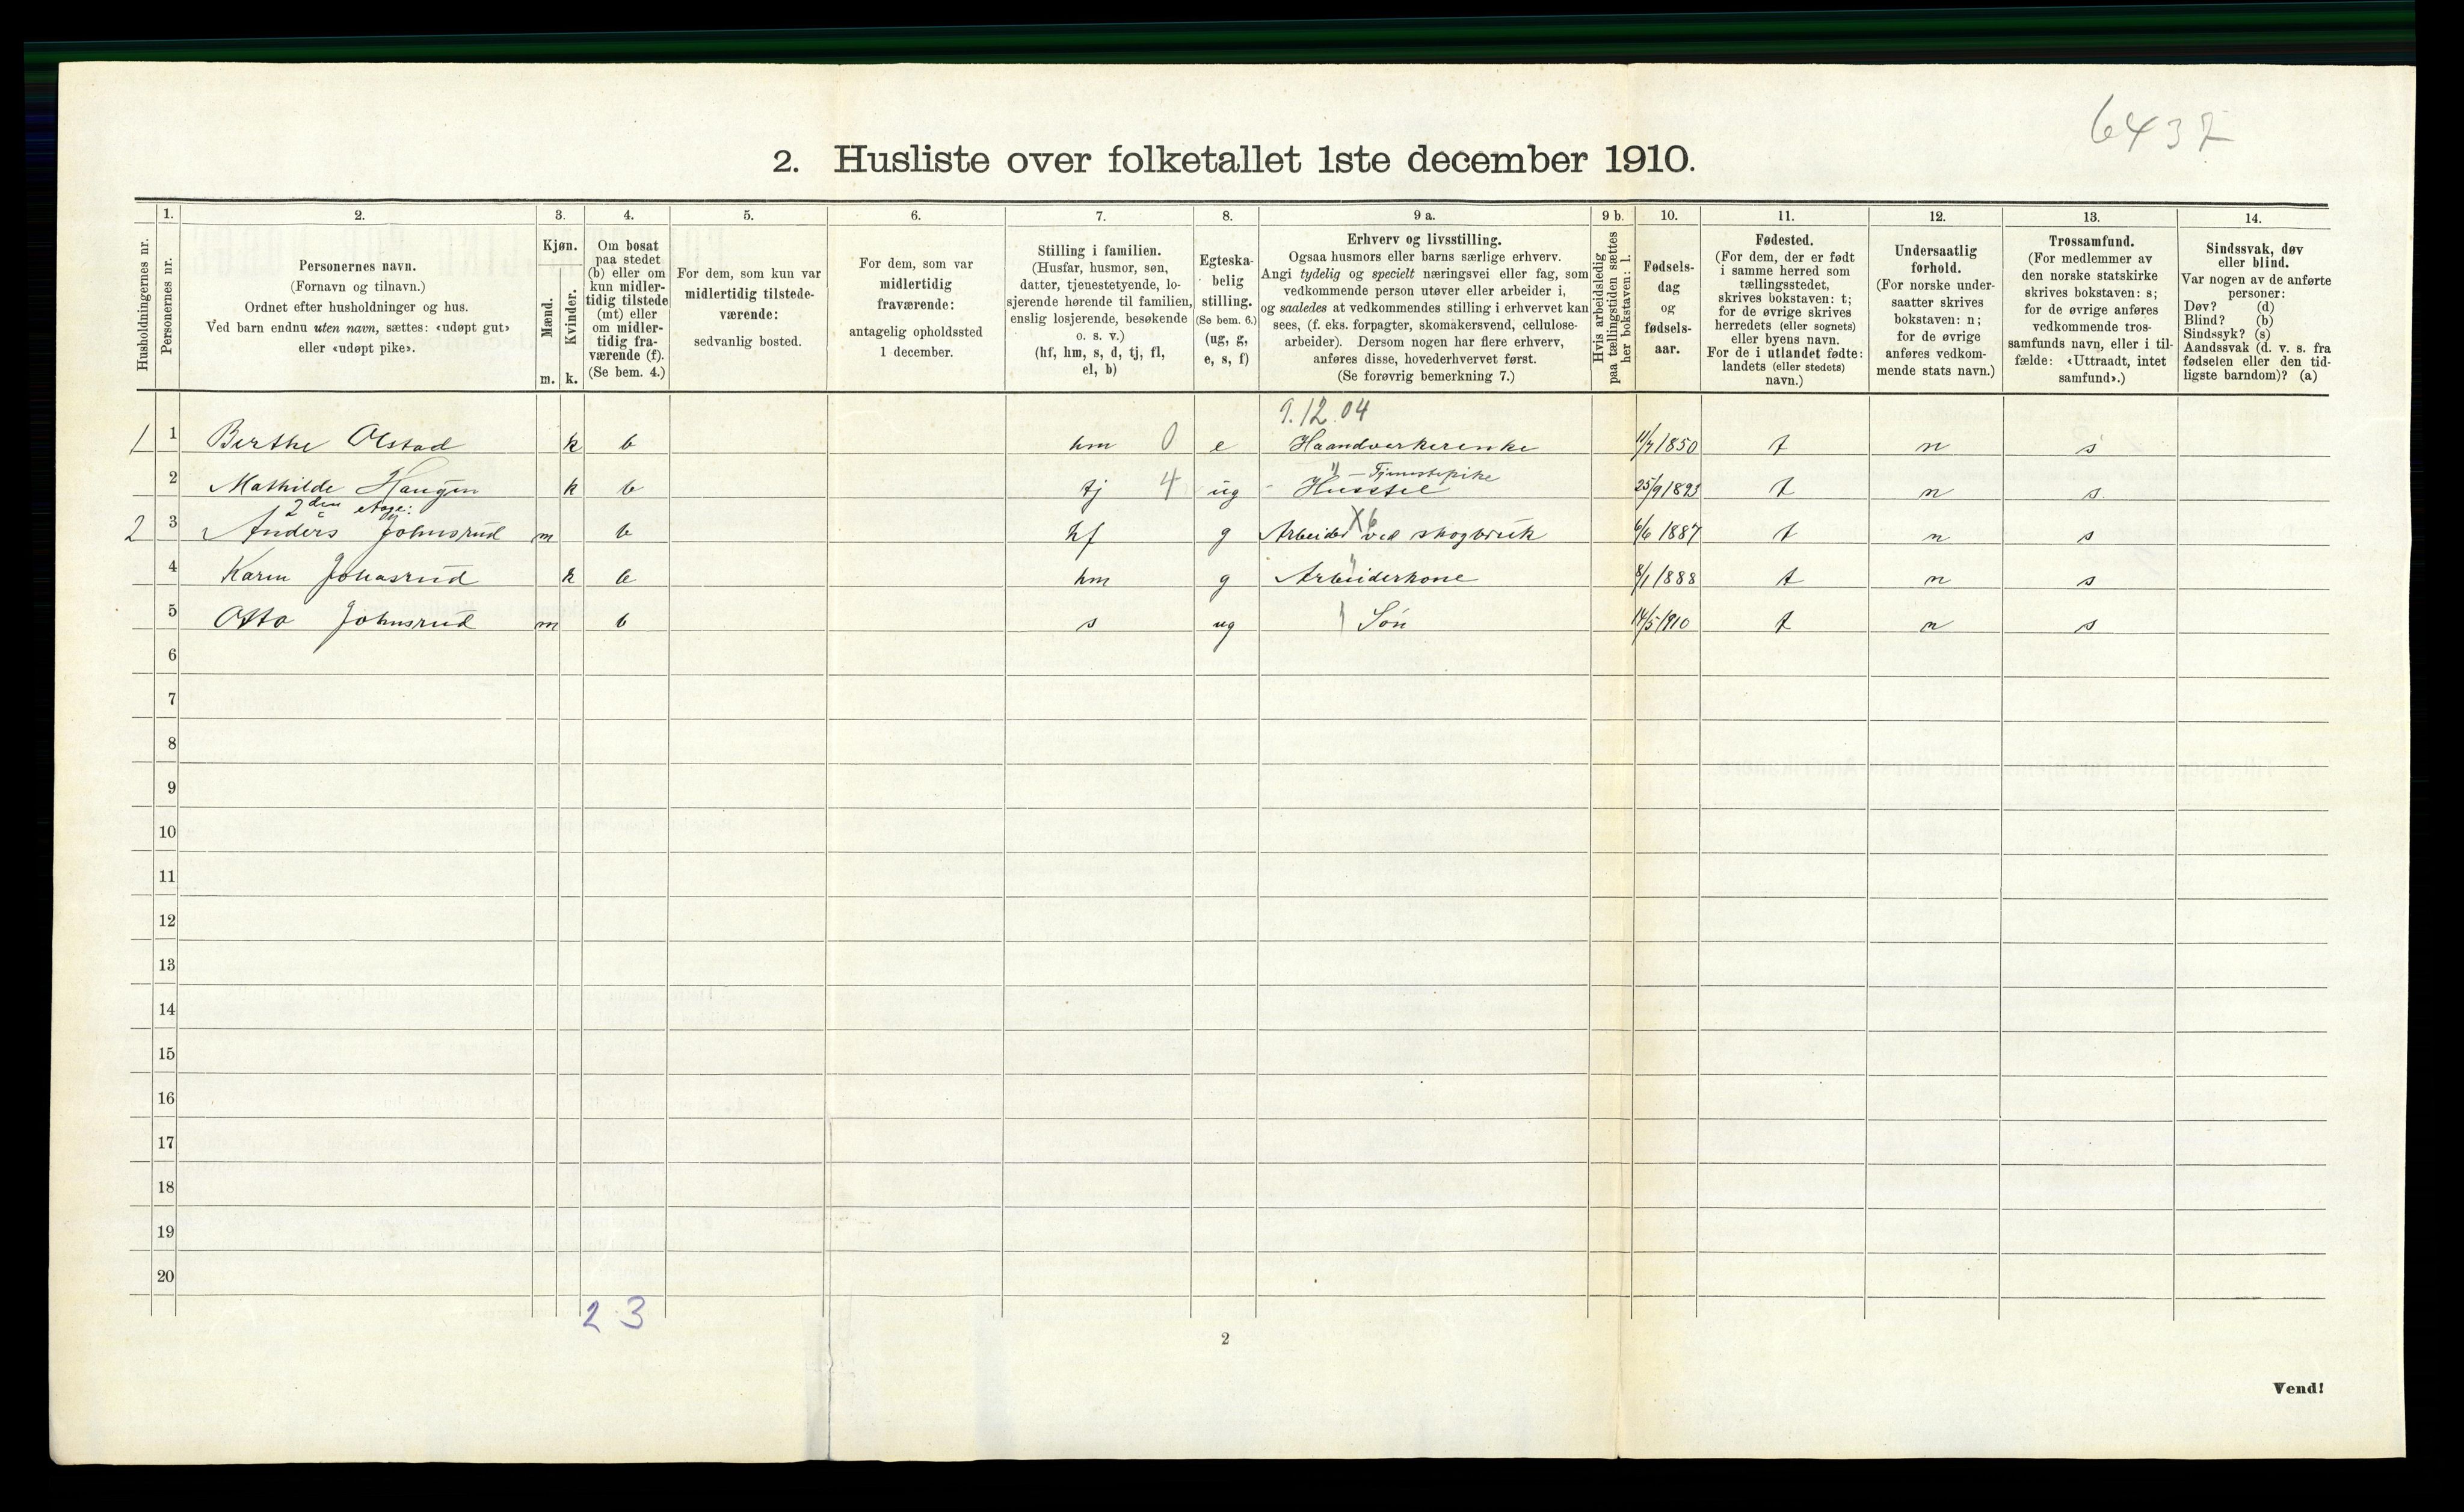 6437
2. Husliste over folketallet 1ste december 1910.
Husholdningernes nr.
1.
Personernes nr.
2.
Personernes navn.
(Fornavn og tilnavn.)
Ordnet efter husholdninger og hus.
Ved barn endnu uten navn, sættes: «udøpt gut»
eller «udøpt pike».
3.
Kjøn.
Mænd.
m.
Kvinder.
k.
4.
Om bosat
paa stedet
(b) eller om
kun midler-
tidig tilstede
(mt) eller
om midler-
tidig fra-
værende (f).
(Se bem. 4.)
5.
For dem, som kun var
midlertidig tilstede-
værende:
sedvanlig bosted.
6.
For dem, som var
midlertidig
fraværende:
antagelig opholdssted
1 december.
7.
Stilling i familien.
(Husfar, husmor, søn,
datter, tjenestetyende, lo-
sjerende hørende til familien,
enslig losjerende, besøkende
o. s. v.)
(hf, hm, s, d, tj, fl,
el, b)
8.
Egteska-
belig
stilling.
(Se bem. 6.)
(ug, g,
e, s, f)
9 a.
Erhverv og livsstilling.
Ogsaa husmors eller barns særlige erhverv.
Angi tydelig og specielt næringsvei eller fag, som
vedkommende person utøver eller arbeider i,
og saaledes at vedkommendes stilling i erhvervet kan
sees, (f. eks. forpagter, skomakersvend, cellulose-
arbeider). Dersom nogen har flere erhverv,
anføres disse, hovederhvervet først.
(Se forøvrig bemerkning 7.)
9 b.
Hvis arbeidsledig
paa tællingstiden sættes
her bokstaven: l.
10.
Fødsels-
dag
og
fødsels-
aar.
11.
Fødested.
(For dem, der er født
i samme herred som
tællingsstedet,
skrives bokstaven: t;
for de øvrige skrives
herredets (eller sognets)
eller byens navn.
For de i utlandet fødte:
landets (eller stedets)
navn.)
12.
Undersaatlig
forhold.
(For norske under-
saatter skrives
bokstaven: n;
for de øvrige
anføres vedkom-
mende stats navn.)
13.
Trossamfund.
(For medlemmer av
den norske statskirke
skrives bokstaven: s;
for de øvrige anføres
vedkommende tros-
samfunds navn, eller i til-
fælde: «Uttraadt, intet
samfund».)
14.
Sindssvak, døv
eller blind.
Var nogen av de anførte
personer:
Døv? (d)
Blind? (b)
Sindssyk? (s)
Aandssvak (d. v. s. fra
fødselen eller den tid-
ligste barndom)? (a)
9.12.04
1 1 Berthe Olstad k b hm 0 e Haandverkerenke 11/7 1850 t n s
" – Tjenestepike
2 Mathilde Haugen k b tj 4 ug - Husstel 25/9 1893 t n s
2den etage:
X6
2 3 Anders Johnsrud m b hf g Arbeider ved skogbruk 6/6 1887 t n s
4 Karen Johnsrud k b hm g Arbeiderkone 8/1 1888 t n s
5 Otto Johnsrud m b s ug Søn 14/5 1910 t n s
6
7
8
9
10
11
12
13
14
15
16
17
18
19
20
2 3
2
Vend!